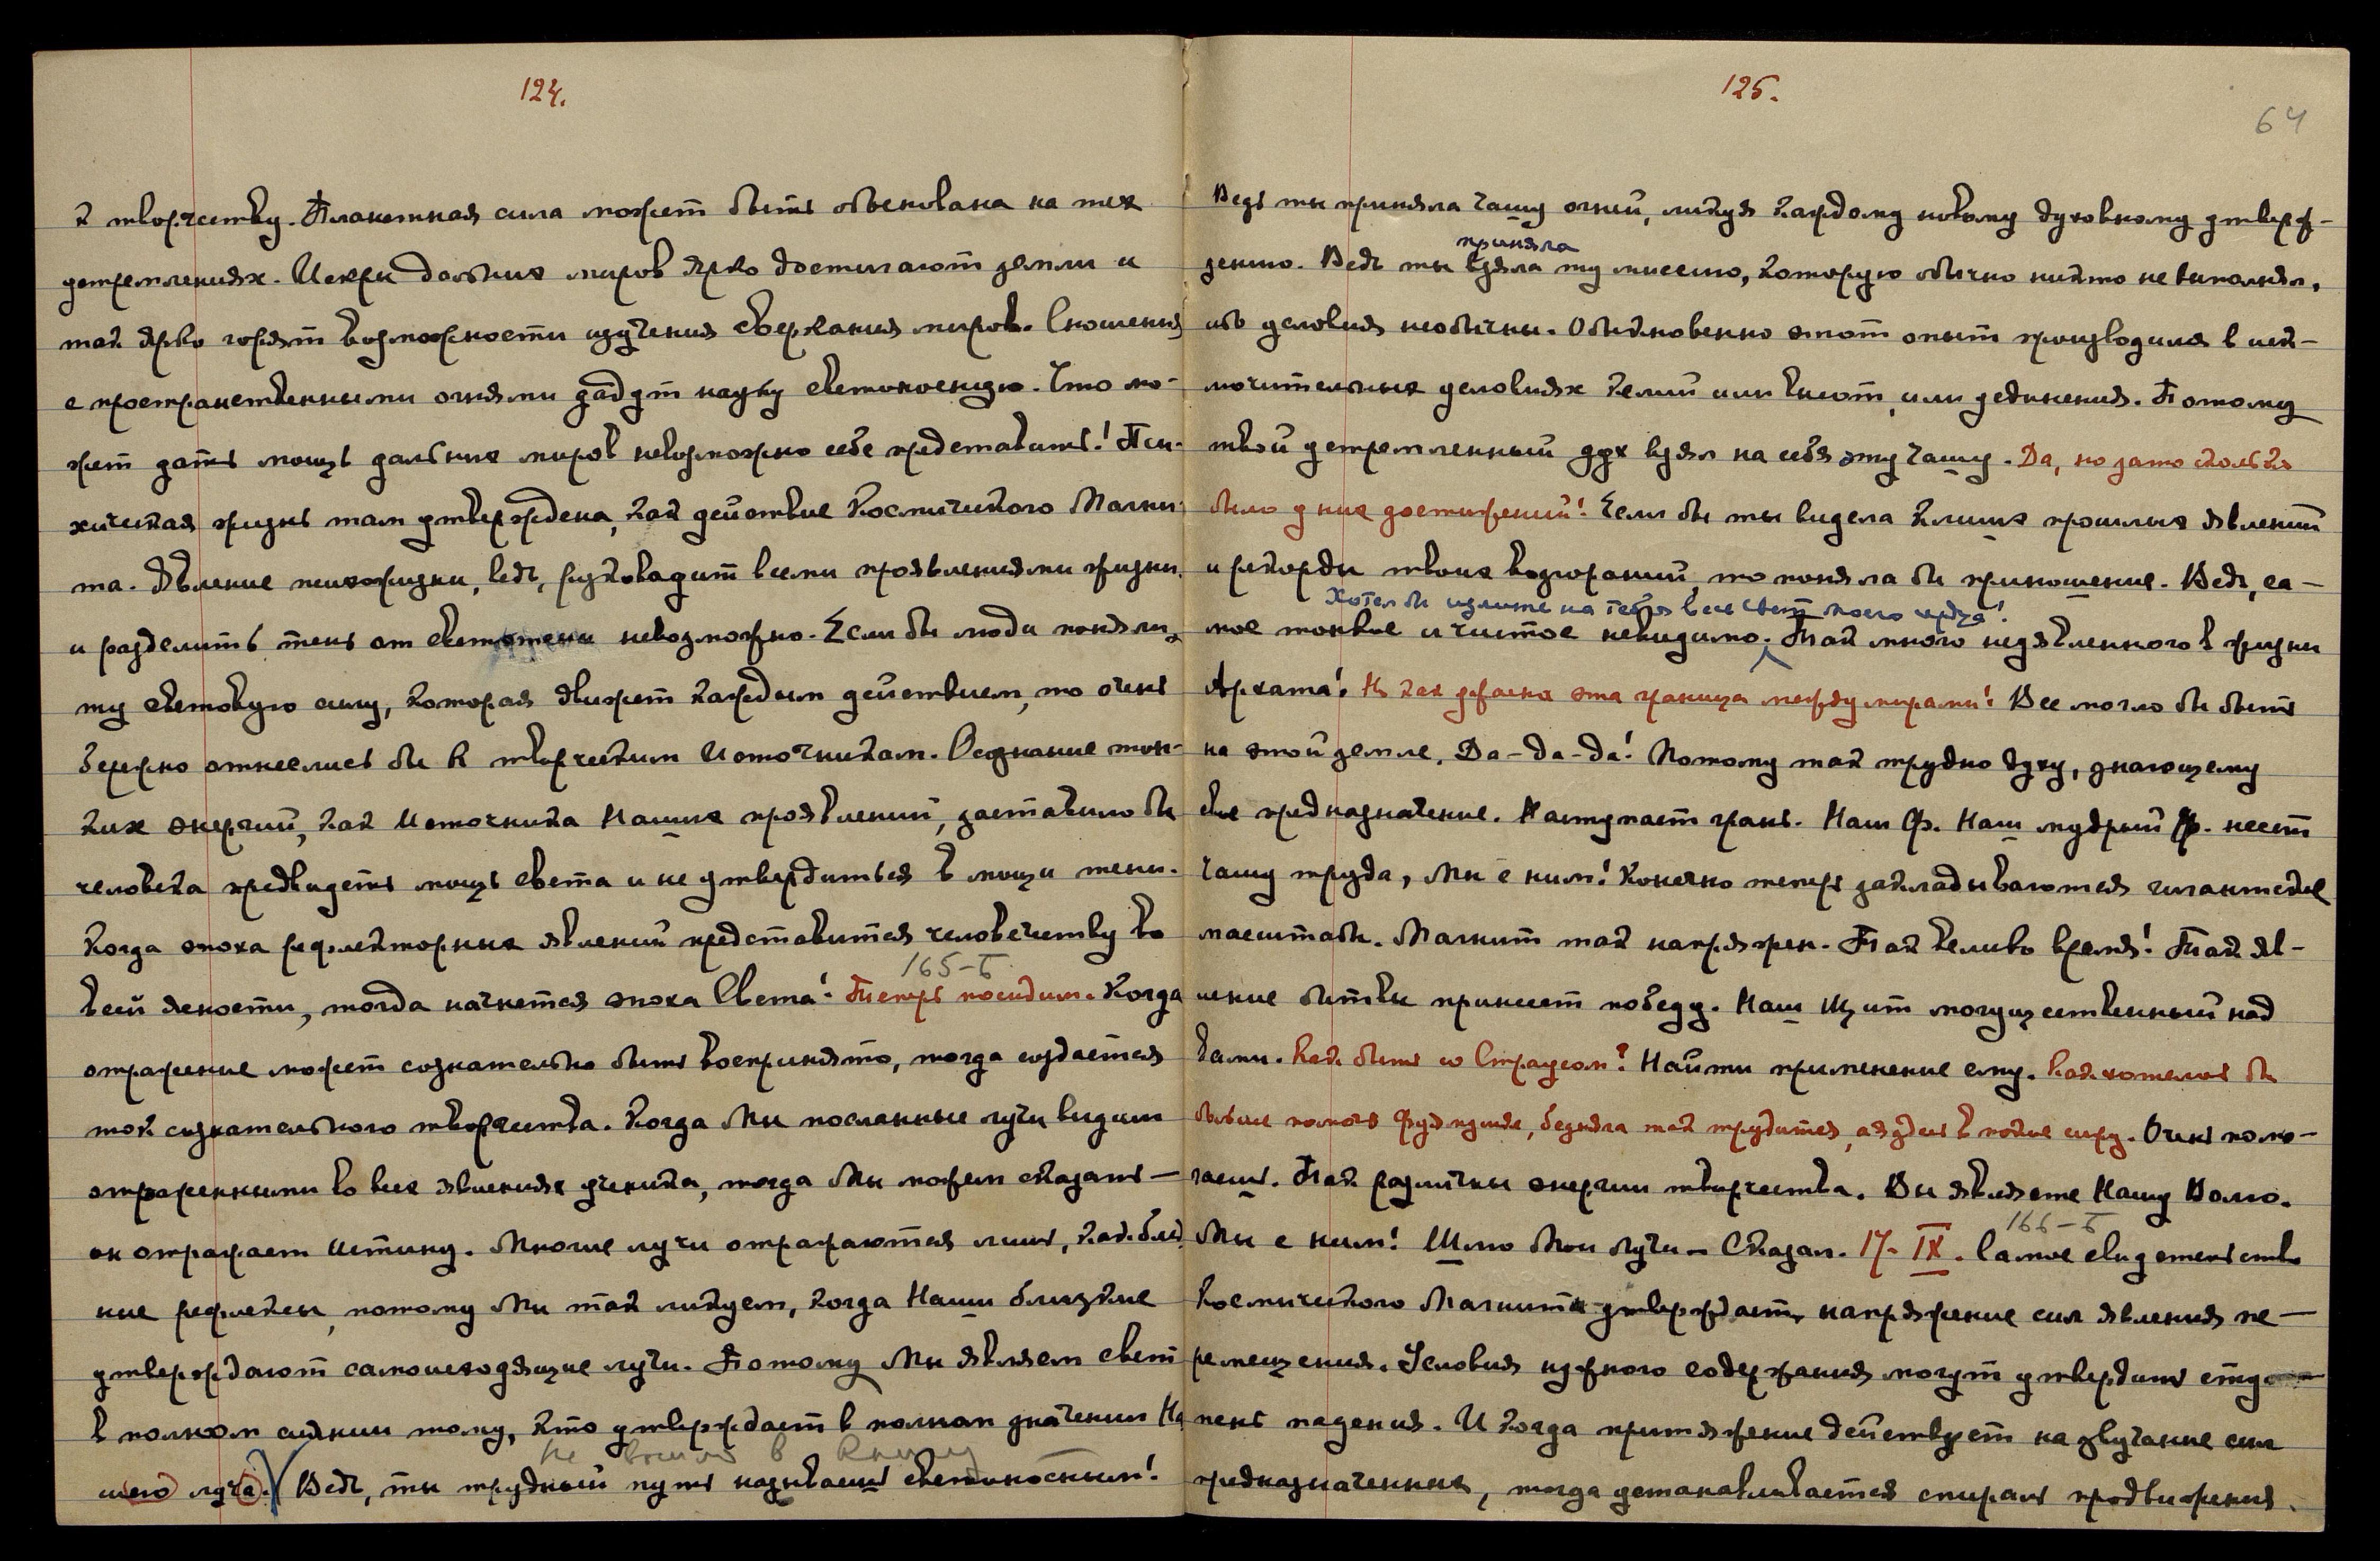 124.
к творчеству. Планетная сила может быть обоснована на тех
устремлениях. Искры дальних миров ярко достигают земли и
так ярко горят возможности изучения сверкания миров. Сношения
с пространственными огнями дадут науку светоносную. Что мо-
жет дать мощь дальних миров невозможно себе представить! Пси-
хическая жизнь там утверждена, как действие Космического Магни-
та. Явление психожизни, ведь, руководит всеми проявлениями жизни.
и разделить тень от света невозможно. Если бы люди поняли
ту световую силу, которая движет каждым действием, то очень
бережно отнеслись бы к творческим Источникам. Осознание тон-
ких энергий, как Источника Наших проявлений, заставило бы
человека предвидеть мощь света и не утвердиться в мощи тени.
Когда эпоха рефлекторных явлений представится человечеству во
165-Б
всей ясности, тогда начнется эпоха Света! Теперь посидим. Когда
отражение может сознательно быть воспринято, тогда создается
ток сознательного творчества. Когда Мы посланные лучи видим
отраженными во всех явлениях ученика, тогда Мы можем сказать —
он отражает Истину. Многие лучи отражаются лишь, как блед-
ные рефлексы, потому Мы так ликуем, когда Наши близкие
утверждают самоисходящие лучи. Потому Мы являем свет
в полном сиянии тому, кто утверждает в полном значении На
не вошло в книгу
шего луча. Ведь, ты трудный путь называешь светоносным!
125.
64
Ведь ты приняла чашу огней, ликуя каждому новому духовному утверж-
приняла
дению. Ведь ты взяла ту миссию, которую обычно никто не выполнял,
ибо условия необычны. Обыкновенно этот опыт производился в иск-
лючительных условиях келий или высот, или уединения. Потому
твой устремленный дух взял на себя эту чашу. Да, но зато сколько
было у них достижений! Если бы ты видела клише прошлых явлений
и рекорды твоих возгораний, то поняла бы приношение. Ведь, са-
Хотел бы излить на тебя весь свет моего сердца!
мое тонкое и чистое невидимо. Так много неуявленного в жизни
Архата! Но как ужасна эта граница между мирами! Все могло бы быть
на этой земле. Да-да-да! Потому так трудно духу, знающему
свое предназначение. Наступает грань. Наш Ф. Наш мудрый Ф. несет
чашу труда, Мы с ним! Конечно теперь закладываются гигантские
масштабы. Магнит так напряжен. Так велико время! Так яв-
ление битвы принесет победу. Наш Щит могущественный над
вами. Как быть со Страусом? Найти применение ему. Как хотелось бы
больше помочь Фуяме, бедняга так трудится, а я здесь в покое сижу. Очень помо-
гаешь. Так различны энергии творчества. Вы являете Нашу Волю.
166-Б
Мы с ним! Шлю Мои Лучи — Сказал. 17. IX. Самое свидетельство
Космического Магнита утверждает напряжение сил явления пе-
ремещения. Условия нужного содержания могут утвердить сту
пень падения. И когда притяжение действует на звучание сил
предназначенных, тогда устанавливается спираль продвижения.